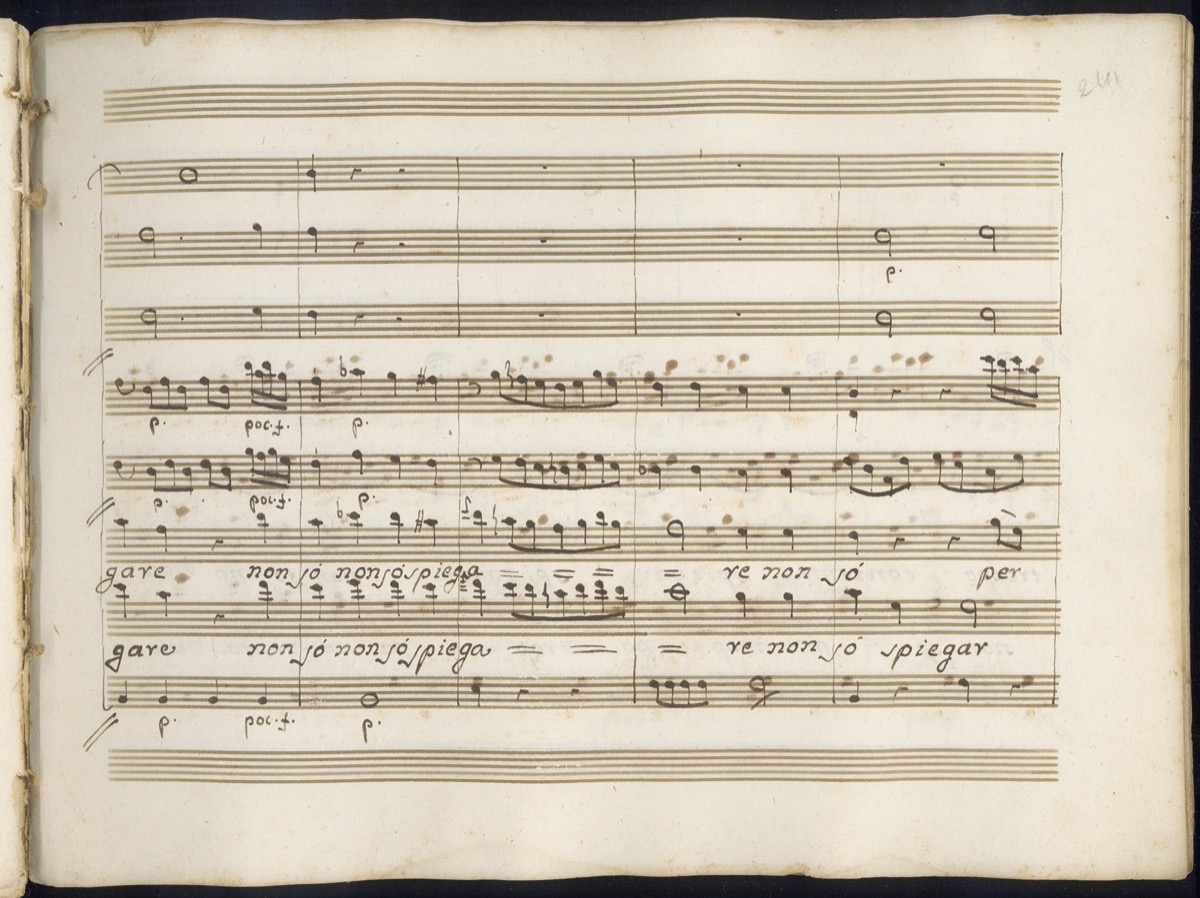 p.
p. poc. f. p.
p. poc. f. p.
gare non só non só spiega = = = = re non só per
gare non só non só spiega = = = re non só spiegar
p. poc. f. p.